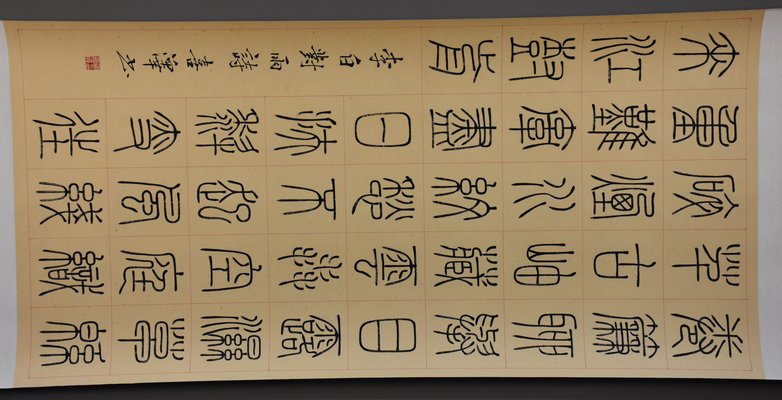 卷簾聊舉目露濕草綿
芊古岫藏雲毳空庭織
碎煙水愁不起風線
重難牽盡日扶犁叟往
來江樹前
李白對雨詩 嘉澤書